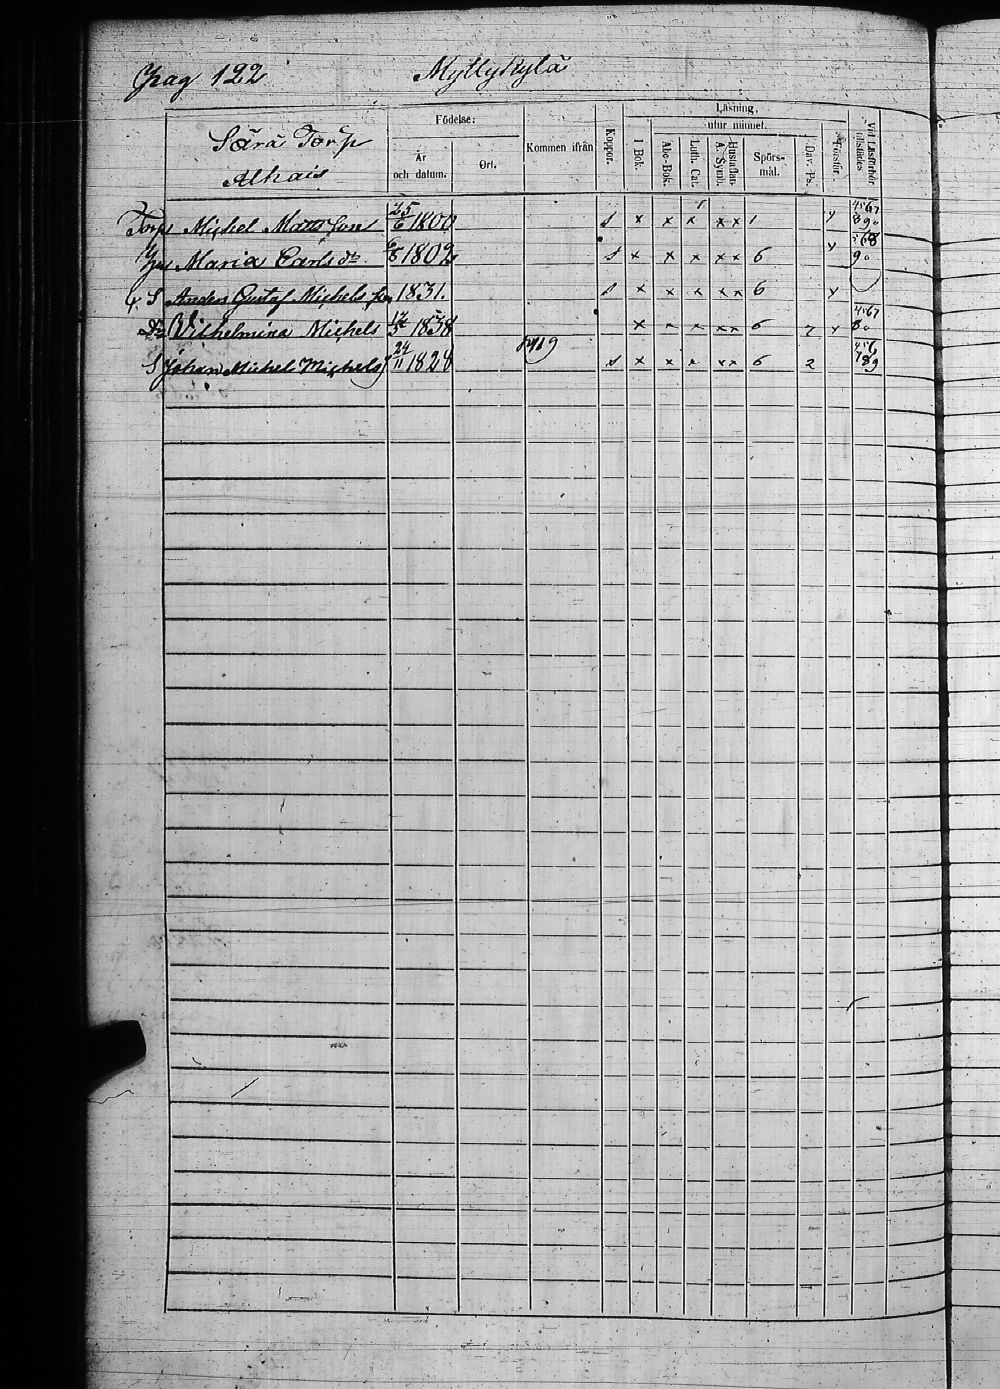 Pag 122 Myllykylä
Särä Torp
Alhais
Födelse:
År
och datum.
Ort.
Kommen ifrån
Koppor.
Läsning,
utur minnet.
I Bok.
Abc-Bok.
Luth. Cat.
Hustaflan
A. Symb.
Spörs-
mål.
Dav. Ps.
Förstår.
Vid Läsförhör
tillstädes
Torp Michel Matts Son 25/6 1800 s x x x x x 1 x 4567 890
Maria Carls dr 6/8 1802 s x x x x x 6 x 568 90
S Anders Gustaf Michels 1831. s x x x x x 6 x
Dr Vilhelmina Michels 1838 x x x x x 6 7 x 4567 80
S Johan Michel Michels 24/11 1828 s x x x x x 6 2 456 789